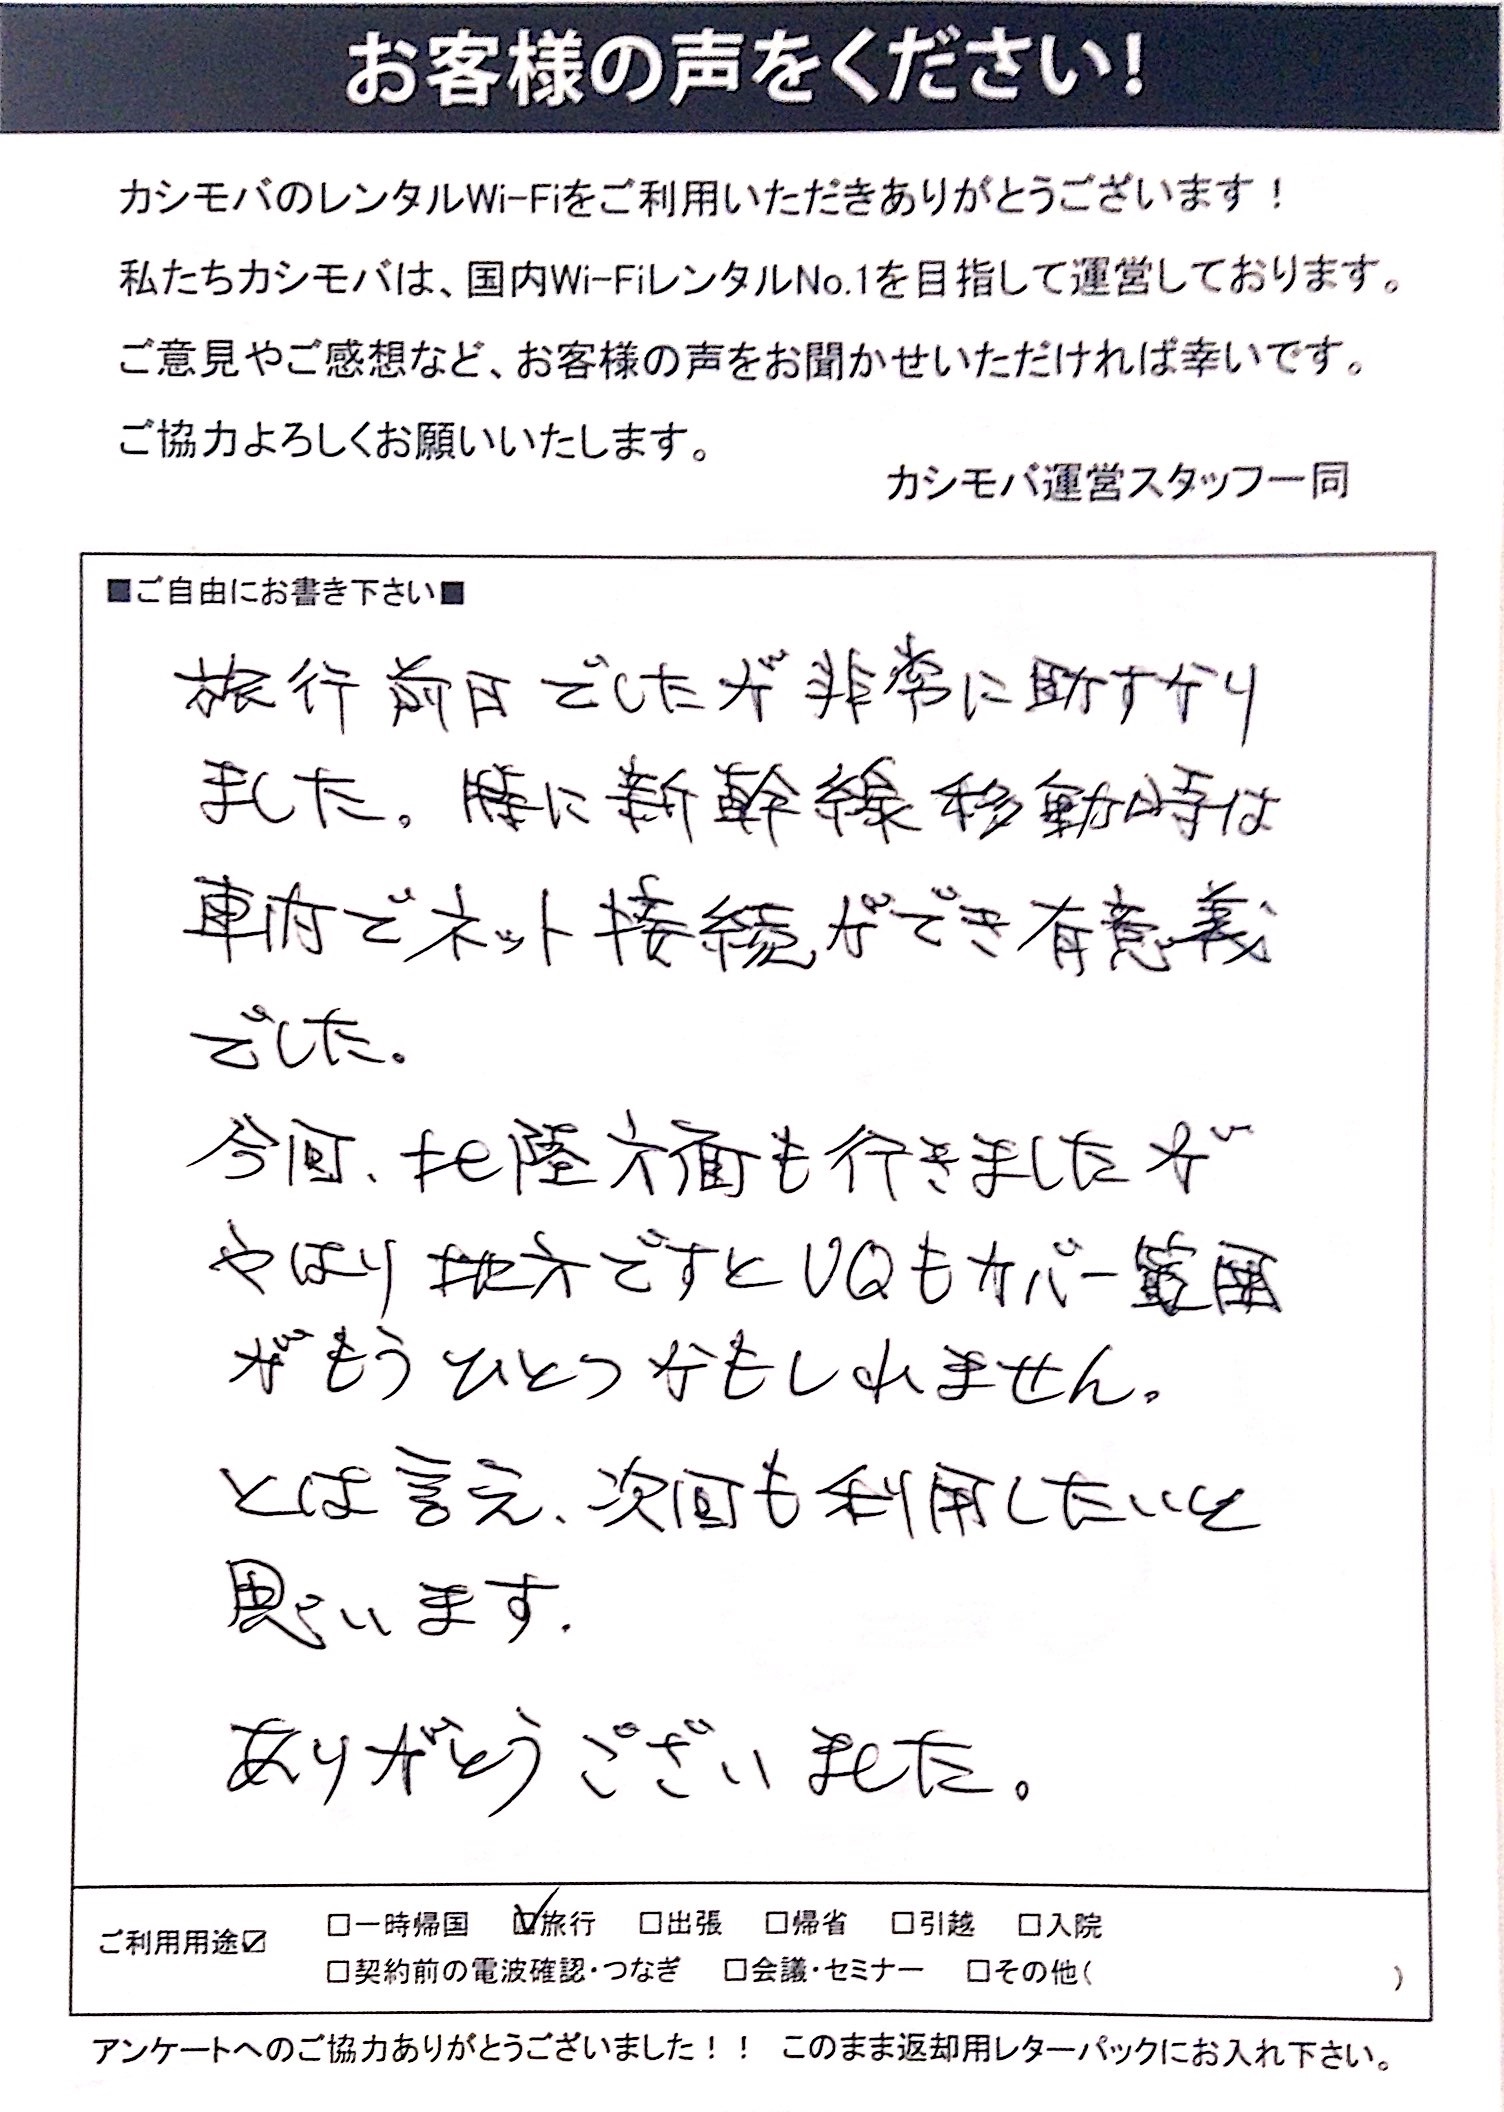 お客様の声をください!
カシモバのレンタルWi-Fiをご利用いただきありがとうございます！
私たちカシモバは、国内Wi-FiレンタルNo.1を目指して運営しております。
ご意見やご感想など、お客様の声をお聞かせいただければ幸いです。
ご協力よろしくお願いいたします。
カシモバ運営スタッフ一同
■ご自由にお書き下さい■
旅行前日でしたが非常に助すかり
ました。特に新幹線移動時は
車内でネット接続ができ有意義
でした。
今回、北陸方面も行きましたが
やはり地方ですとUQもカバー範囲
がもうひとつかもしれません。
とは言え、次回も利用したいと
思います.
ありがとうございました。
ご利用用途☑
□一時帰国 ☑旅行 □出張 □帰省 □引越 □入院
□契約前の電波確認・つなぎ □会議・セミナー □その他( )
アンケートへのご協力ありがとうございました！！ このまま返却用レターパックにお入れ下さい。